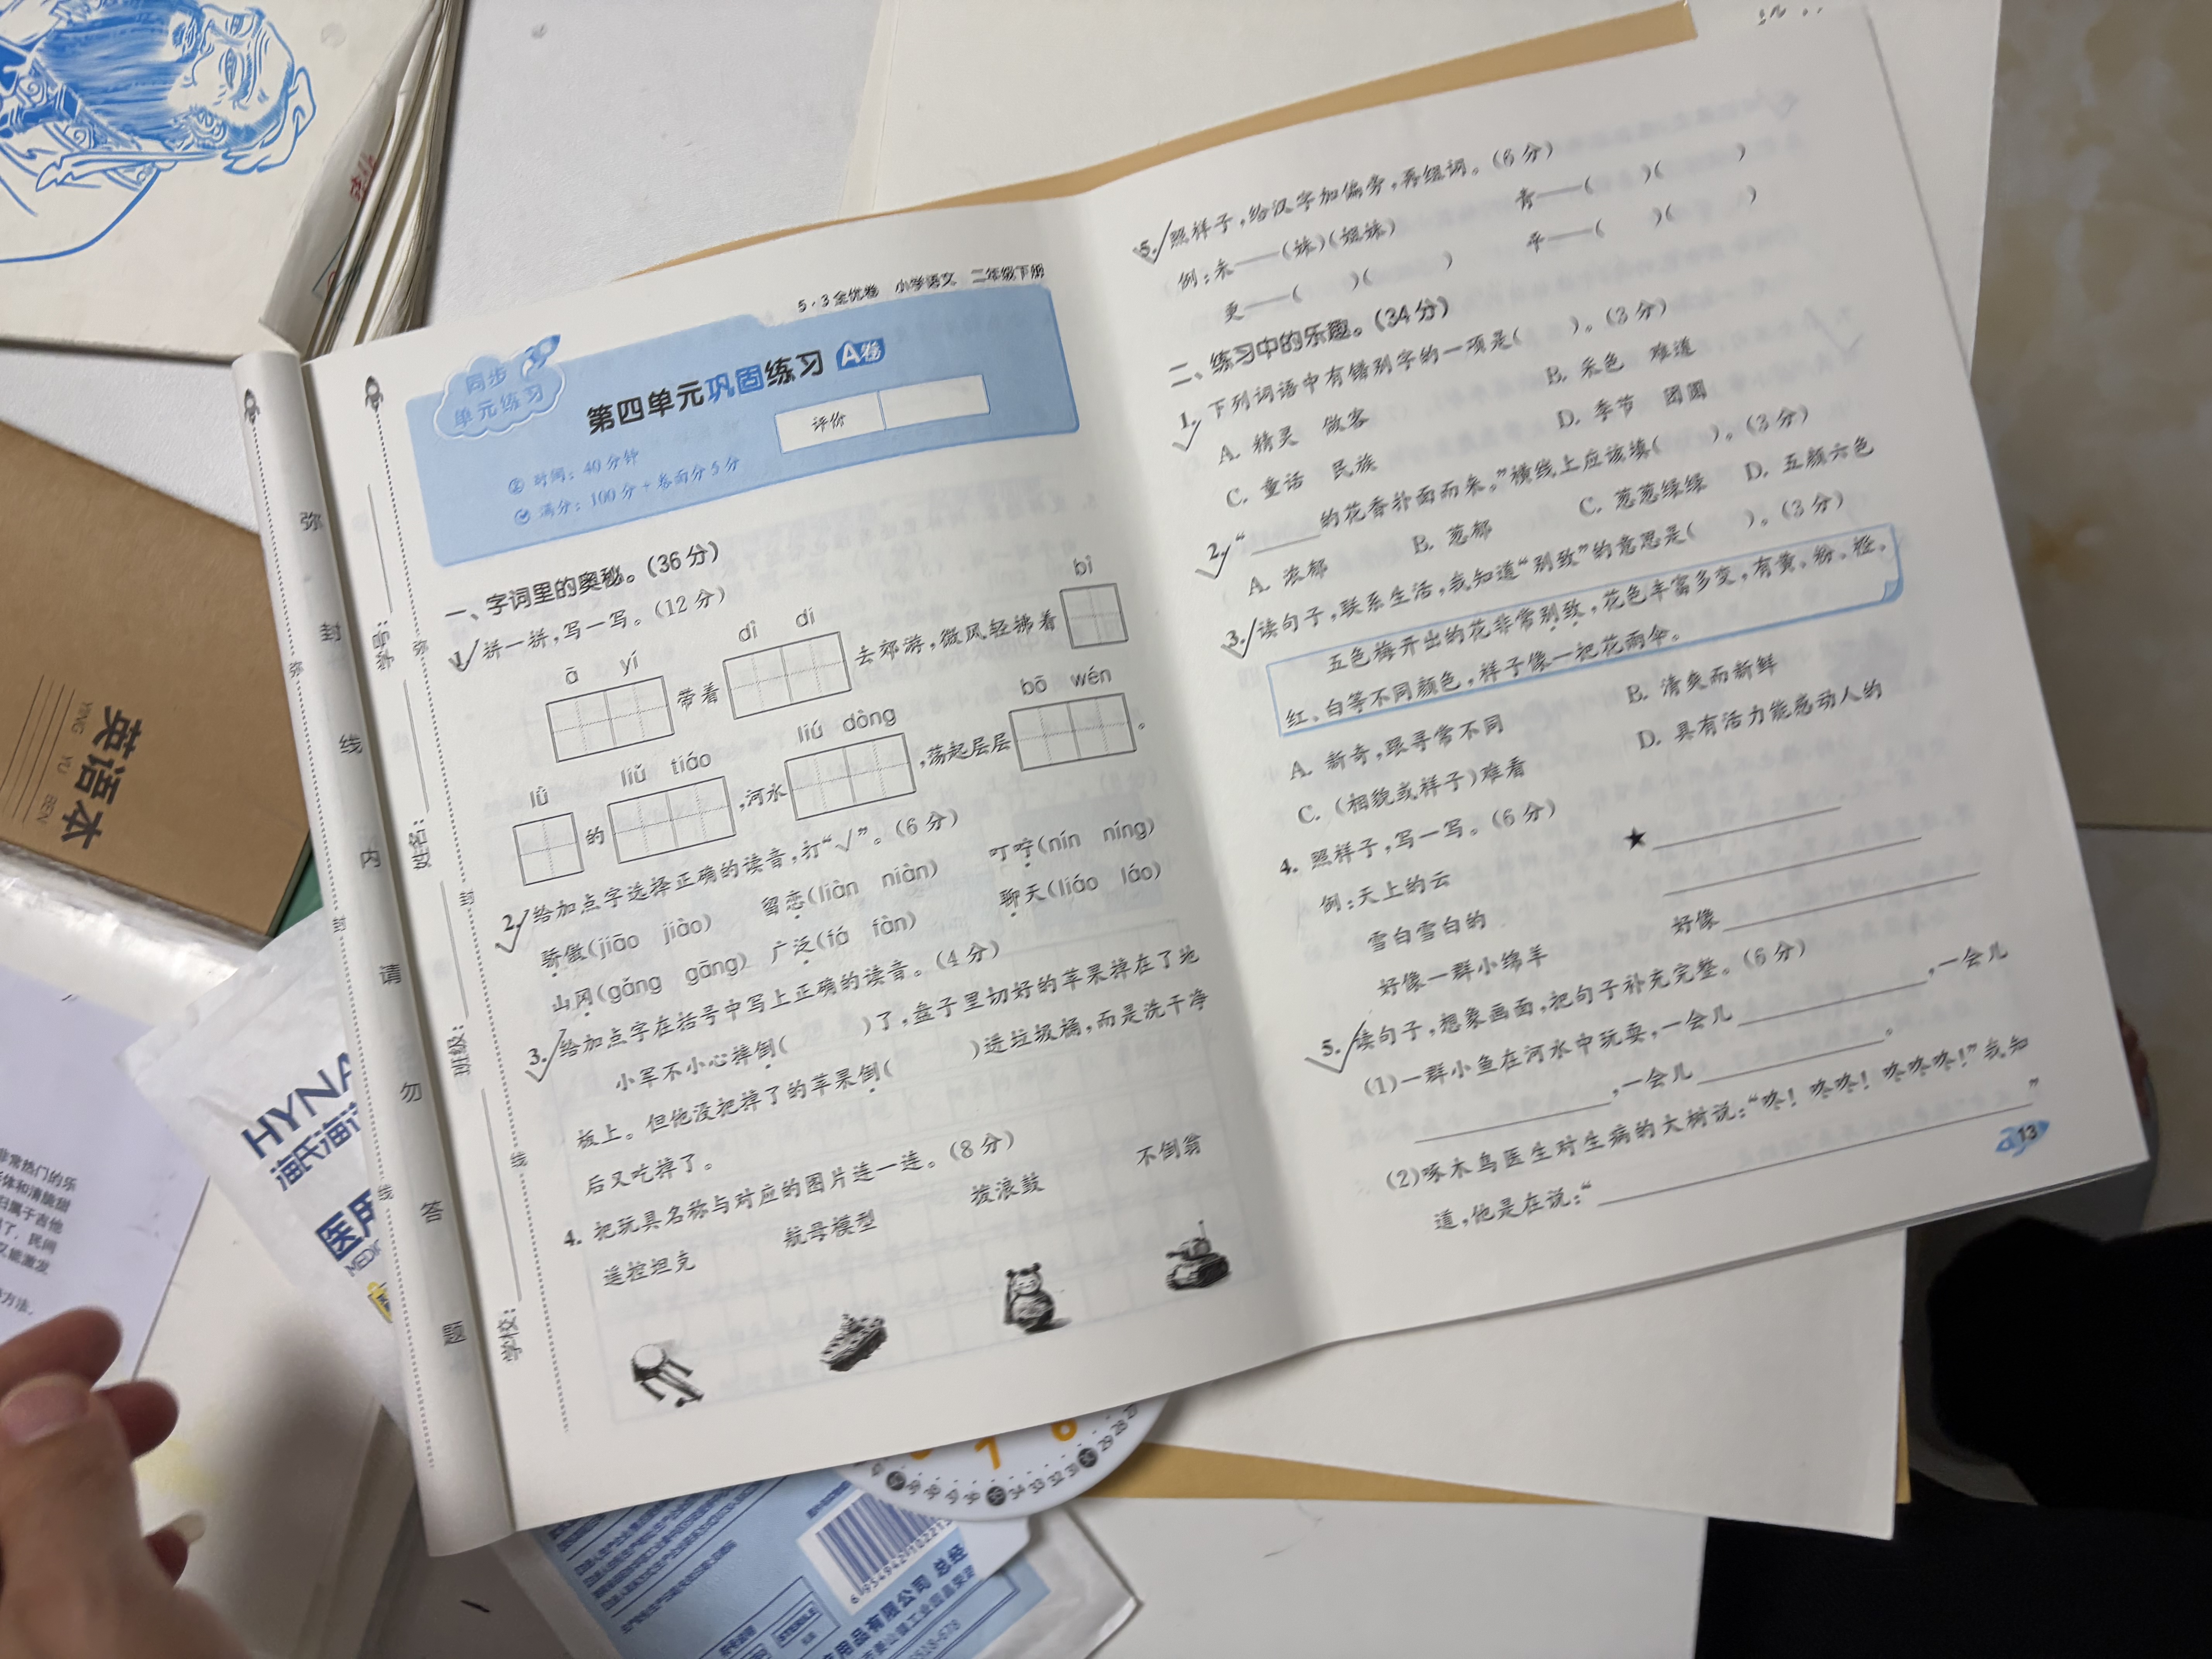 5·3全优卷 小学语文 二年级下册
同步
单元练习
第四单元巩固练习 A卷
评价
时间：40分钟
满分：100分+卷面分5分
一、字词里的奥秘。（36分）
1. 拼一拼，写一写。（12分）
ā yí
dì di
bǐ
带着
去郊游，微风轻拂着
lǜ
liǔ tiáo
liú dòng
bō wén
的
，河水
，荡起层层
。
2. 给加点字选择正确的读音，打“√”。（6分）
骄傲（jiāo jiào） 留恋（liàn niàn） 叮咛（nín níng）
山冈（gǎng gāng） 广泛（fá fàn） 聊天（liáo láo）
3. 给加点字在括号中写上正确的读音。（4分）
小军不小心摔倒（ ）了，盘子里切好的苹果掉在了地
板上。但他没把掉了的苹果倒（ ）进垃圾桶，而是洗干净
后又吃掉了。
4. 把玩具名称与对应的图片连一连。（8分）
遥控坦克 航母模型 拨浪鼓 不倒翁
5. 照样子，给汉字加偏旁，再组词。（6分）
例：未——（妹）（姐妹） 青——（ ）（ ）
更——（ ）（ ） 平——（ ）（ ）
二、练习中的乐趣。（34分）
1. 下列词语中有错别字的一项是（ ）。（3分）
A. 精灵 做客 B. 采色 难道
C. 童话 民族 D. 季节 团圆
2. “____的花香扑面而来。”横线上应该填（ ）。（3分）
A. 浓郁 B. 葱郁 C. 葱葱绿绿 D. 五颜六色
3. 读句子，联系生活，我知道“别致”的意思是（ ）。（3分）
五色梅开出的花非常别致，花色丰富多变，有黄、粉、橙、
红、白等不同颜色，样子像一把花雨伞。
A. 新奇，跟寻常不同 B. 清爽而新鲜
C. （相貌或样子）难看 D. 具有活力能感动人的
4. 照样子，写一写。（6分）
例：天上的云 ★
雪白雪白的
好像一群小绵羊 好像
5. 读句子，想象画面，把句子补充完整。（6分）
（1）一群小鱼在河水中玩耍，一会儿____，一会儿
____，一会儿____。
（2）啄木鸟医生对生病的大树说：“咚！咚咚！咚咚咚！”我知
道，他是在说：“____”
13
弥
封
线
内
请
勿
答
题
学号：
姓名：
班级：
学校：
英语本
YING YU BEN
HYNA
海氏海
医用